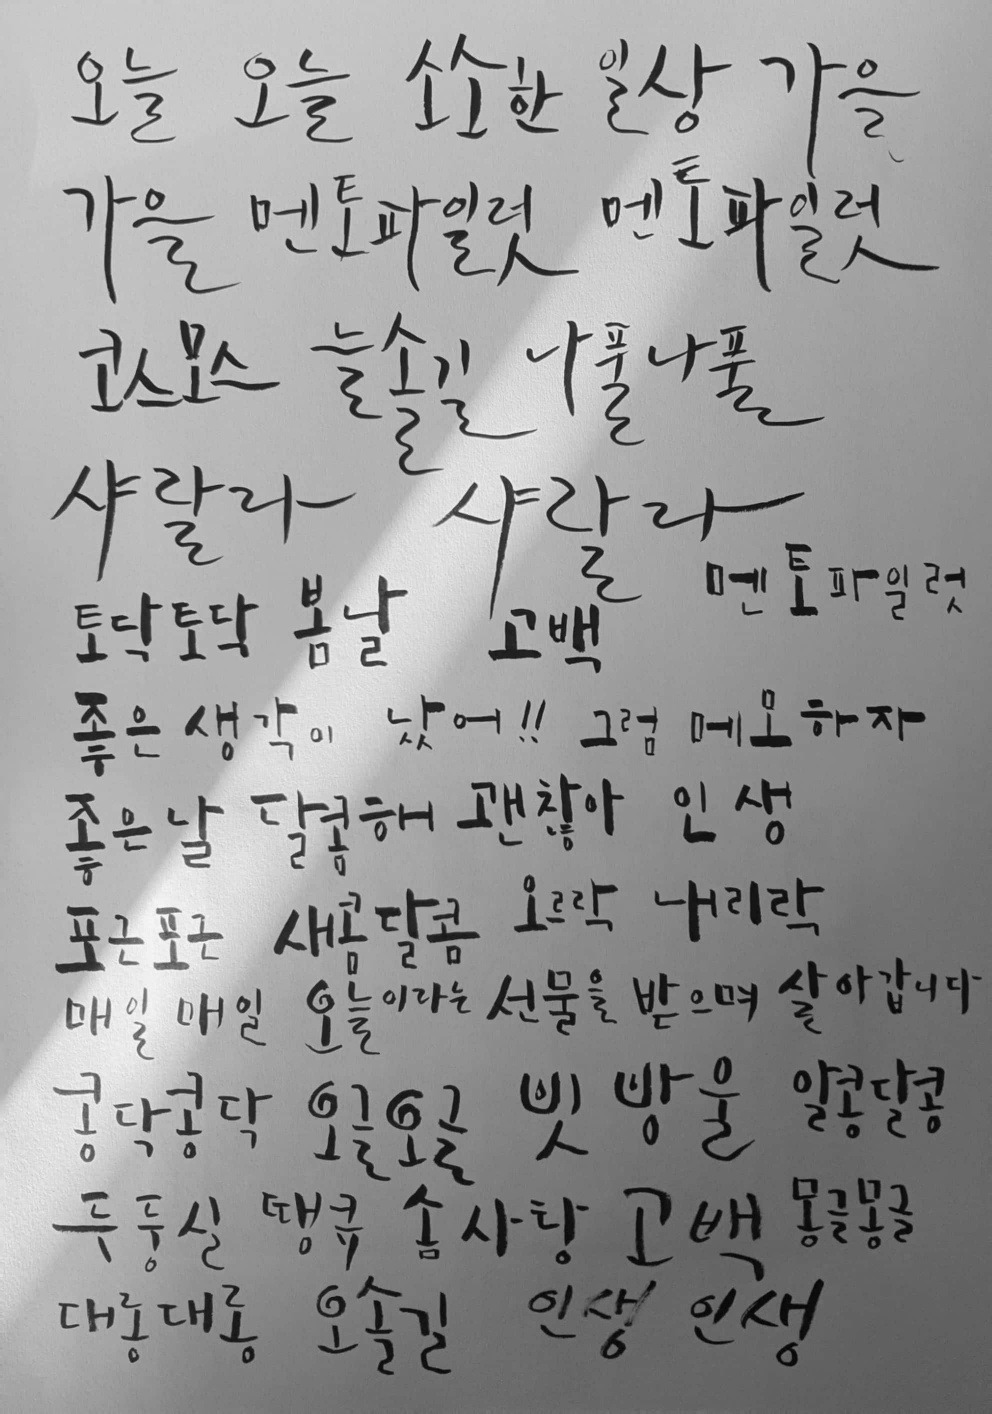 오늘 오늘 소소한 일상 가을
가을 멘토파일럿 멘토파일럿
코스모스 늘솔길 나풀나풀
샤랄라 샤랄라
멘토파일럿
토닥토닥 봄날 고백
좋은 생각이 났어!! 그럼 메모하자
좋은날 달콤해 괜찮아 인생
포근포근 새콤달콤 오르락 내리락
매일 매일 오늘이라는 선물을 받으며 살아갑니다
콩닥콩닥 오글오글 빗방울 알콩달콩
두둥실 땡큐 솜사탕 고백 몽글몽글
대롱대롱 오솔길 인생 인생